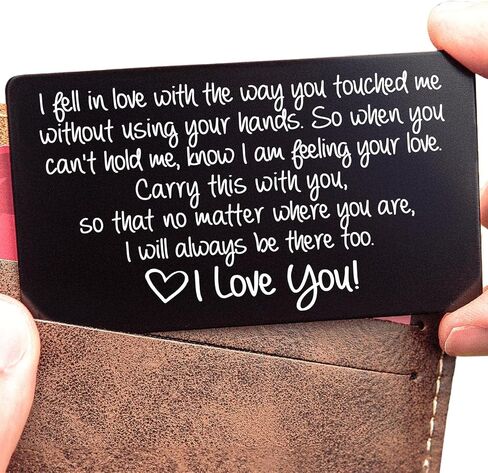 I fell in love with the way you touched me
without using your hands. So when you
can't hold me, know I am feeling your love.
Carry this with you,
so that no matter where you are,
I will always be there too.
♡I Love You!